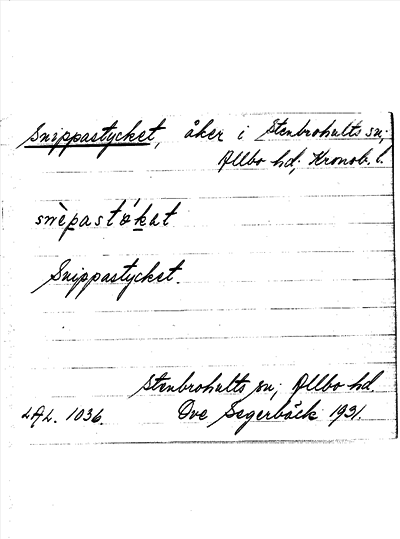 Snippastycket, åker i Stenbrohults sn;
Allbo hd, Kronob. l.
snèpastókat
Snippastycket.
Stenbrohults sn; Allbo hd.
LAL. 1036. Ove Segerbäck 1931.